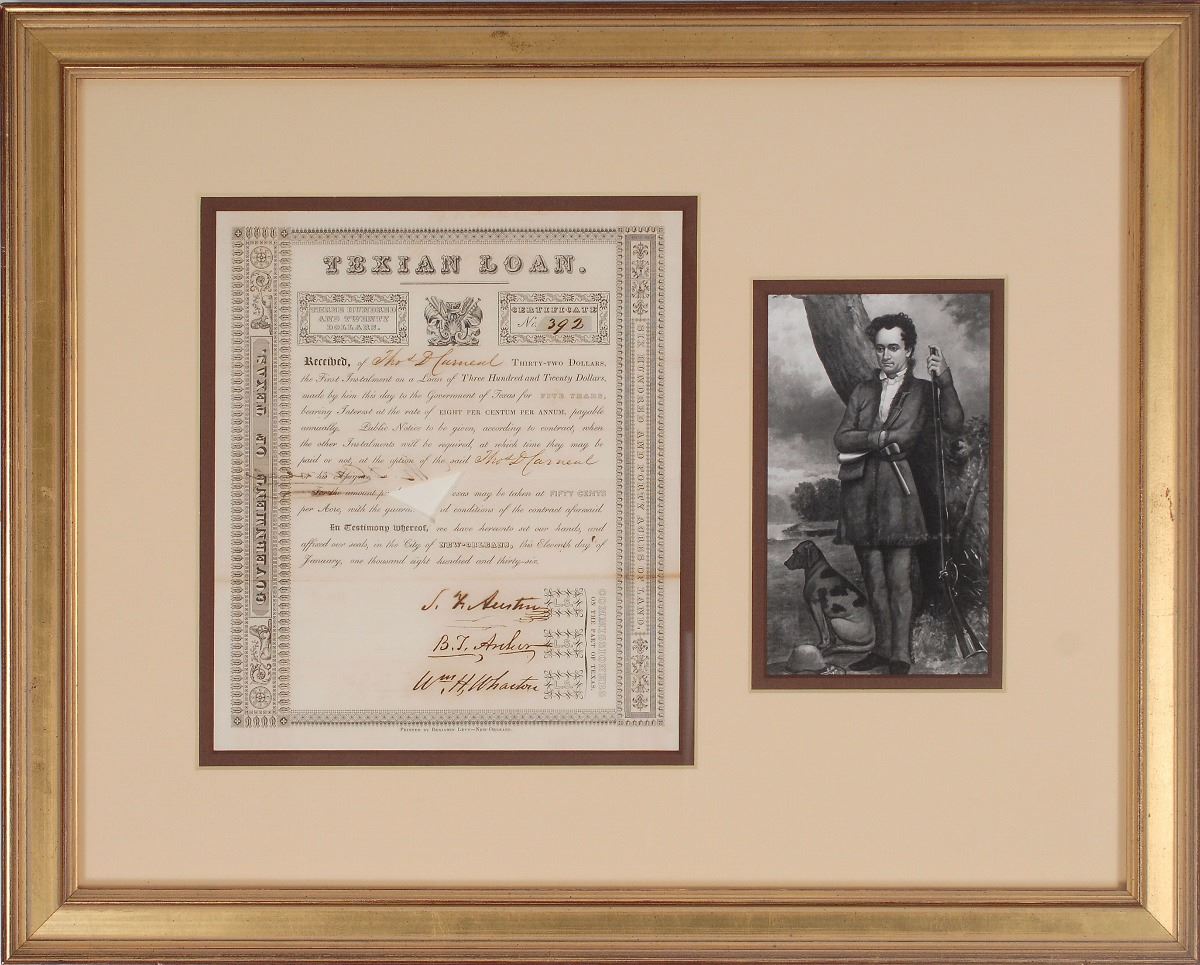 TEXIAN LOAN.
THREE HUNDRED
AND TWENTY
DOLLARS.
CERTIFICATE
No. 392
Received, of Thos D Carneal THIRTY-TWO DOLLARS,
the First Instalment on a Loan of Three Hundred and Twenty Dollars,
made by him this day to the Government of Texas for FIVE YEARS,
bearing Interest at the rate of EIGHT PER CENTUM PER ANNUM, payable
annually. Public Notice to be given, according to contract, when
the other Instalments will be required, at which time they may be
paid or not, at the option of the said Thos D Carneal
or his
For the amount exas may be taken at FIFTY CENTS
per Acre, with the d conditions of the contract aforesaid.
In Testimony whereof, we have hereunto set our hands, and
affixed our seals, in the City of NEW-ORLEANS, this Eleventh day of
January, one thousand eight hundred and thirty-six.
S. F. Austin
B. T. Archer
Wm. H. Wharton
L.S.
L.S.
L.S.
COMMISSIONERS
ON THE PART OF TEXAS.
GOVERNMENT OF TEXAS.
SIX HUNDRED AND FORTY ACRES OF LAND.
PRINTED BY BENJAMIN LEVY—NEW ORLEANS.